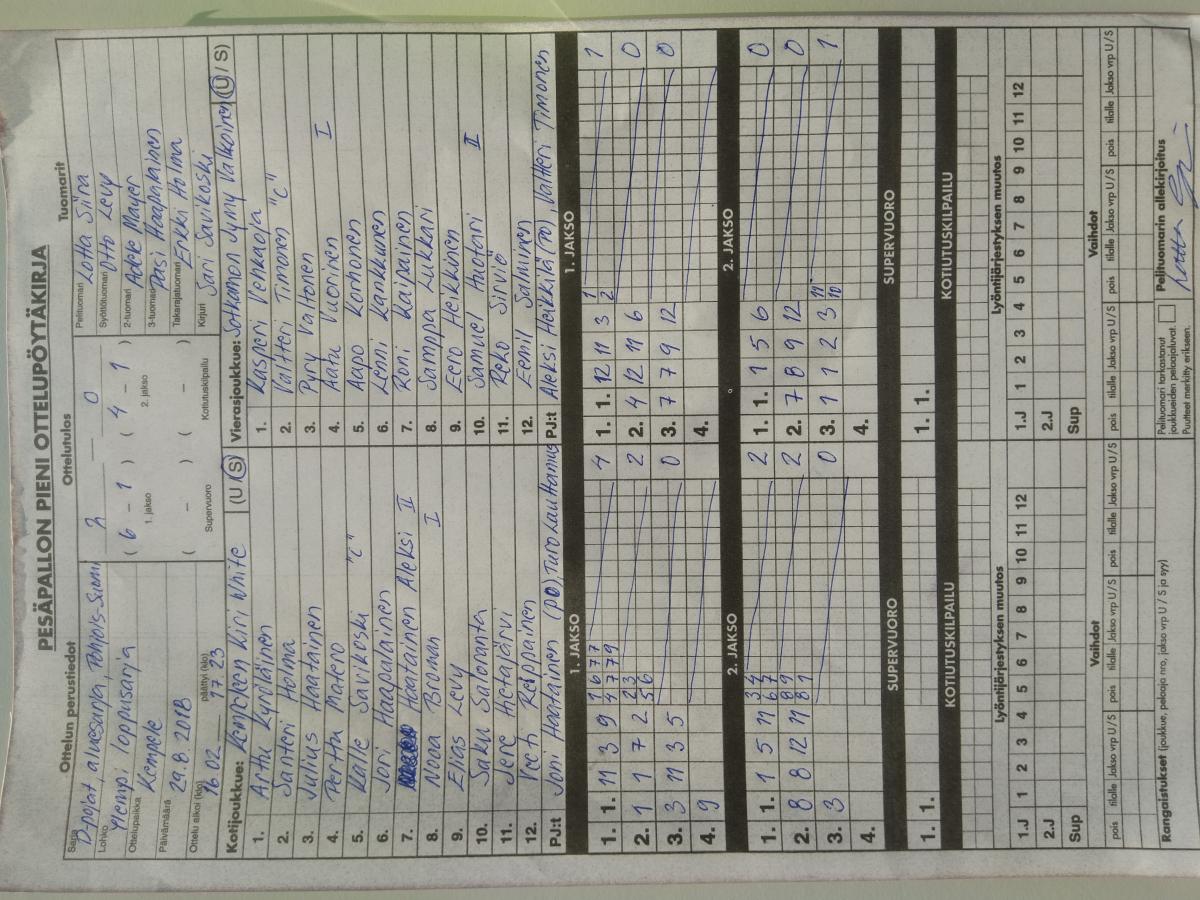 PESÄPALLON PIENI OTTELUPÖYTÄKIRJA
Ottelun perustiedot
Sarja D-pojat, aluesarja, Pohjois-Suomi
Lohko Ylempi loppusarja
Ottelupaikka Kempele
Päivämäärä 29.8.2018
Ottelu alkoi (klo) 16.02 päättyi (klo) 17.23
Ottelutulos
2 0
( 6 – 1 ) ( 4 – 1 )
1. jakso 2. jakso
( – ) ( – )
Supervuoro Kotiutuskilpailu
Tuomarit
Pelituomari Lotta Siira
Syöttötuomari Otto Levy
2-tuomari Mayer
3-tuomari Pasi Haapalainen
Takarajatuomari Erkki Holma
Kirjuri Sari Savikoski
Kotijoukkue: Kempeleen Kiri White (U/S)
1. Arttu Kyröläinen
2. Santeri Holma
3. Julius Haatainen
4. Perttu Matero
5. Kalle Savikoski "C"
6. Joni Haapalainen
7. Määräinen Aleksi II
8. Nooa Broman I
9. Elias Levy
10. Saku Saloranta
11. Jere Hietajärvi
12. Veeti Reippainen
PJ:t Joni Haatainen (PO), Turo Lauttamus
Vierasjoukkue: Sotkamon Jymy Valkoinen (U/S)
1. Kasperi Venkaoja
2. Valtteri Timonen "C"
3. Pyry Valtonen
4. Aatu Vuorinen I
5. Aapo Korhonen
6. Lemi Kankkunen
7. Roni Kaipainen
8. Samppa Lukkari
9. Eero Heikkinen
10. Samuel Huotari II
11. Reko Sirviö
12. Eemil Salminen
PJ:t Aleksi Heikkilä (PO), Valtteri Timonen
1. JAKSO
1. 1. 11 3 9 1 6 7 7 4
4 7 7 9
2. 1 1 7 2 2 3 2
5 6
3. 3 11 3 5 0
4. 9
1. JAKSO
1. 1. 12 11 3 1 1
2
2. 4 12 11 6 0
3. 7 7 9 12 0
4.
2. JAKSO
1. 1. 1 5 11 3 4 2
6 7
2. 8 8 12 11 8 9 2
8 1
3. 3 0
4.
2. JAKSO
1. 1. 1 5 6 0
2. 7 8 9 12 0
3. 1 1 2 3 11 1
10
4.
SUPERVUORO
1. 1.
SUPERVUORO
1. 1.
KOTIUTUSKILPAILU
KOTIUTUSKILPAILU
Lyöntijärjestyksen muutos
1.J 1 2 3 4 5 6 7 8 9 10 11 12
2.J
Sup
Lyöntijärjestyksen muutos
1.J 1 2 3 4 5 6 7 8 9 10 11 12
2.J
Sup
Vaihdot
pois tilalle Jakso vrp U/S pois tilalle Jakso vrp U/S pois tilalle Jakso vrp U/S
Vaihdot
pois tilalle Jakso vrp U/S pois tilalle Jakso vrp U/S pois tilalle Jakso vrp U/S
Rangaistukset (joukkue, pelaaja nro, jakso vrp U / S ja syy)
Pelituomari tarkastanut
joukkueiden pelaajaluvat.
Puutteet merkitty erikseen.
Pelituomarin allekirjoitus